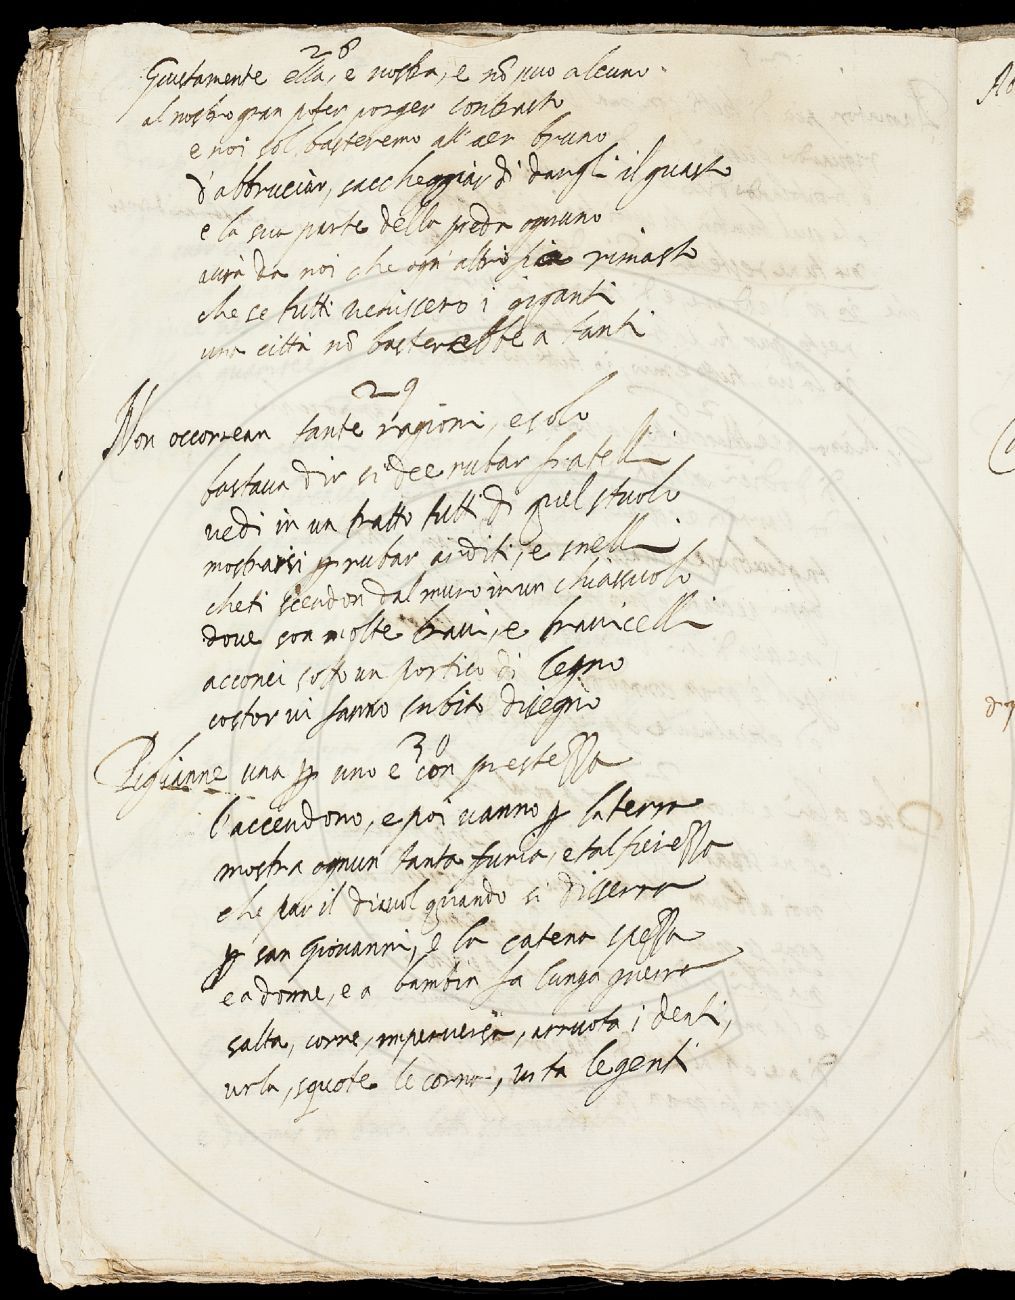 28
Giustamente ella, è nostra, e nõ può alcuno
al nostro gran poter porger contrasto
e noi sol basteremo all'aer bruno
d'abbruciar, saccheggiar di dargli il guasto
e la sua parte della preda ognuno
aurà da noi che ogn'altro sia rimasto
che se tutti venissero i giganti
una città nõ basterebbe a tanti
29
Non occorrean tante ragioni, e solo
bastaua dir si dee rubar fratelli
uedi in un tratto tutti di quel stuolo
mostrarsi p rubar arditi, e snelli
cheti scendon dal muro in un chiassuolo
doue son molte traui, e trauicelli
acconci sotto un portico di legno
costor ui fanno subito disegno
30
Piglianne una p uno e con prestezza
l'accendono, e poi uanno p la terra
mostra ognun tanta furia, e tal fierezza
che par il diauol quando si disserra
p san Giouanni, e la catena spezza
e a donne, e a bambin fa lunga guerra
salta, corre, imperuersa, arruota i denti,
urla, squote le corna, urta le genti